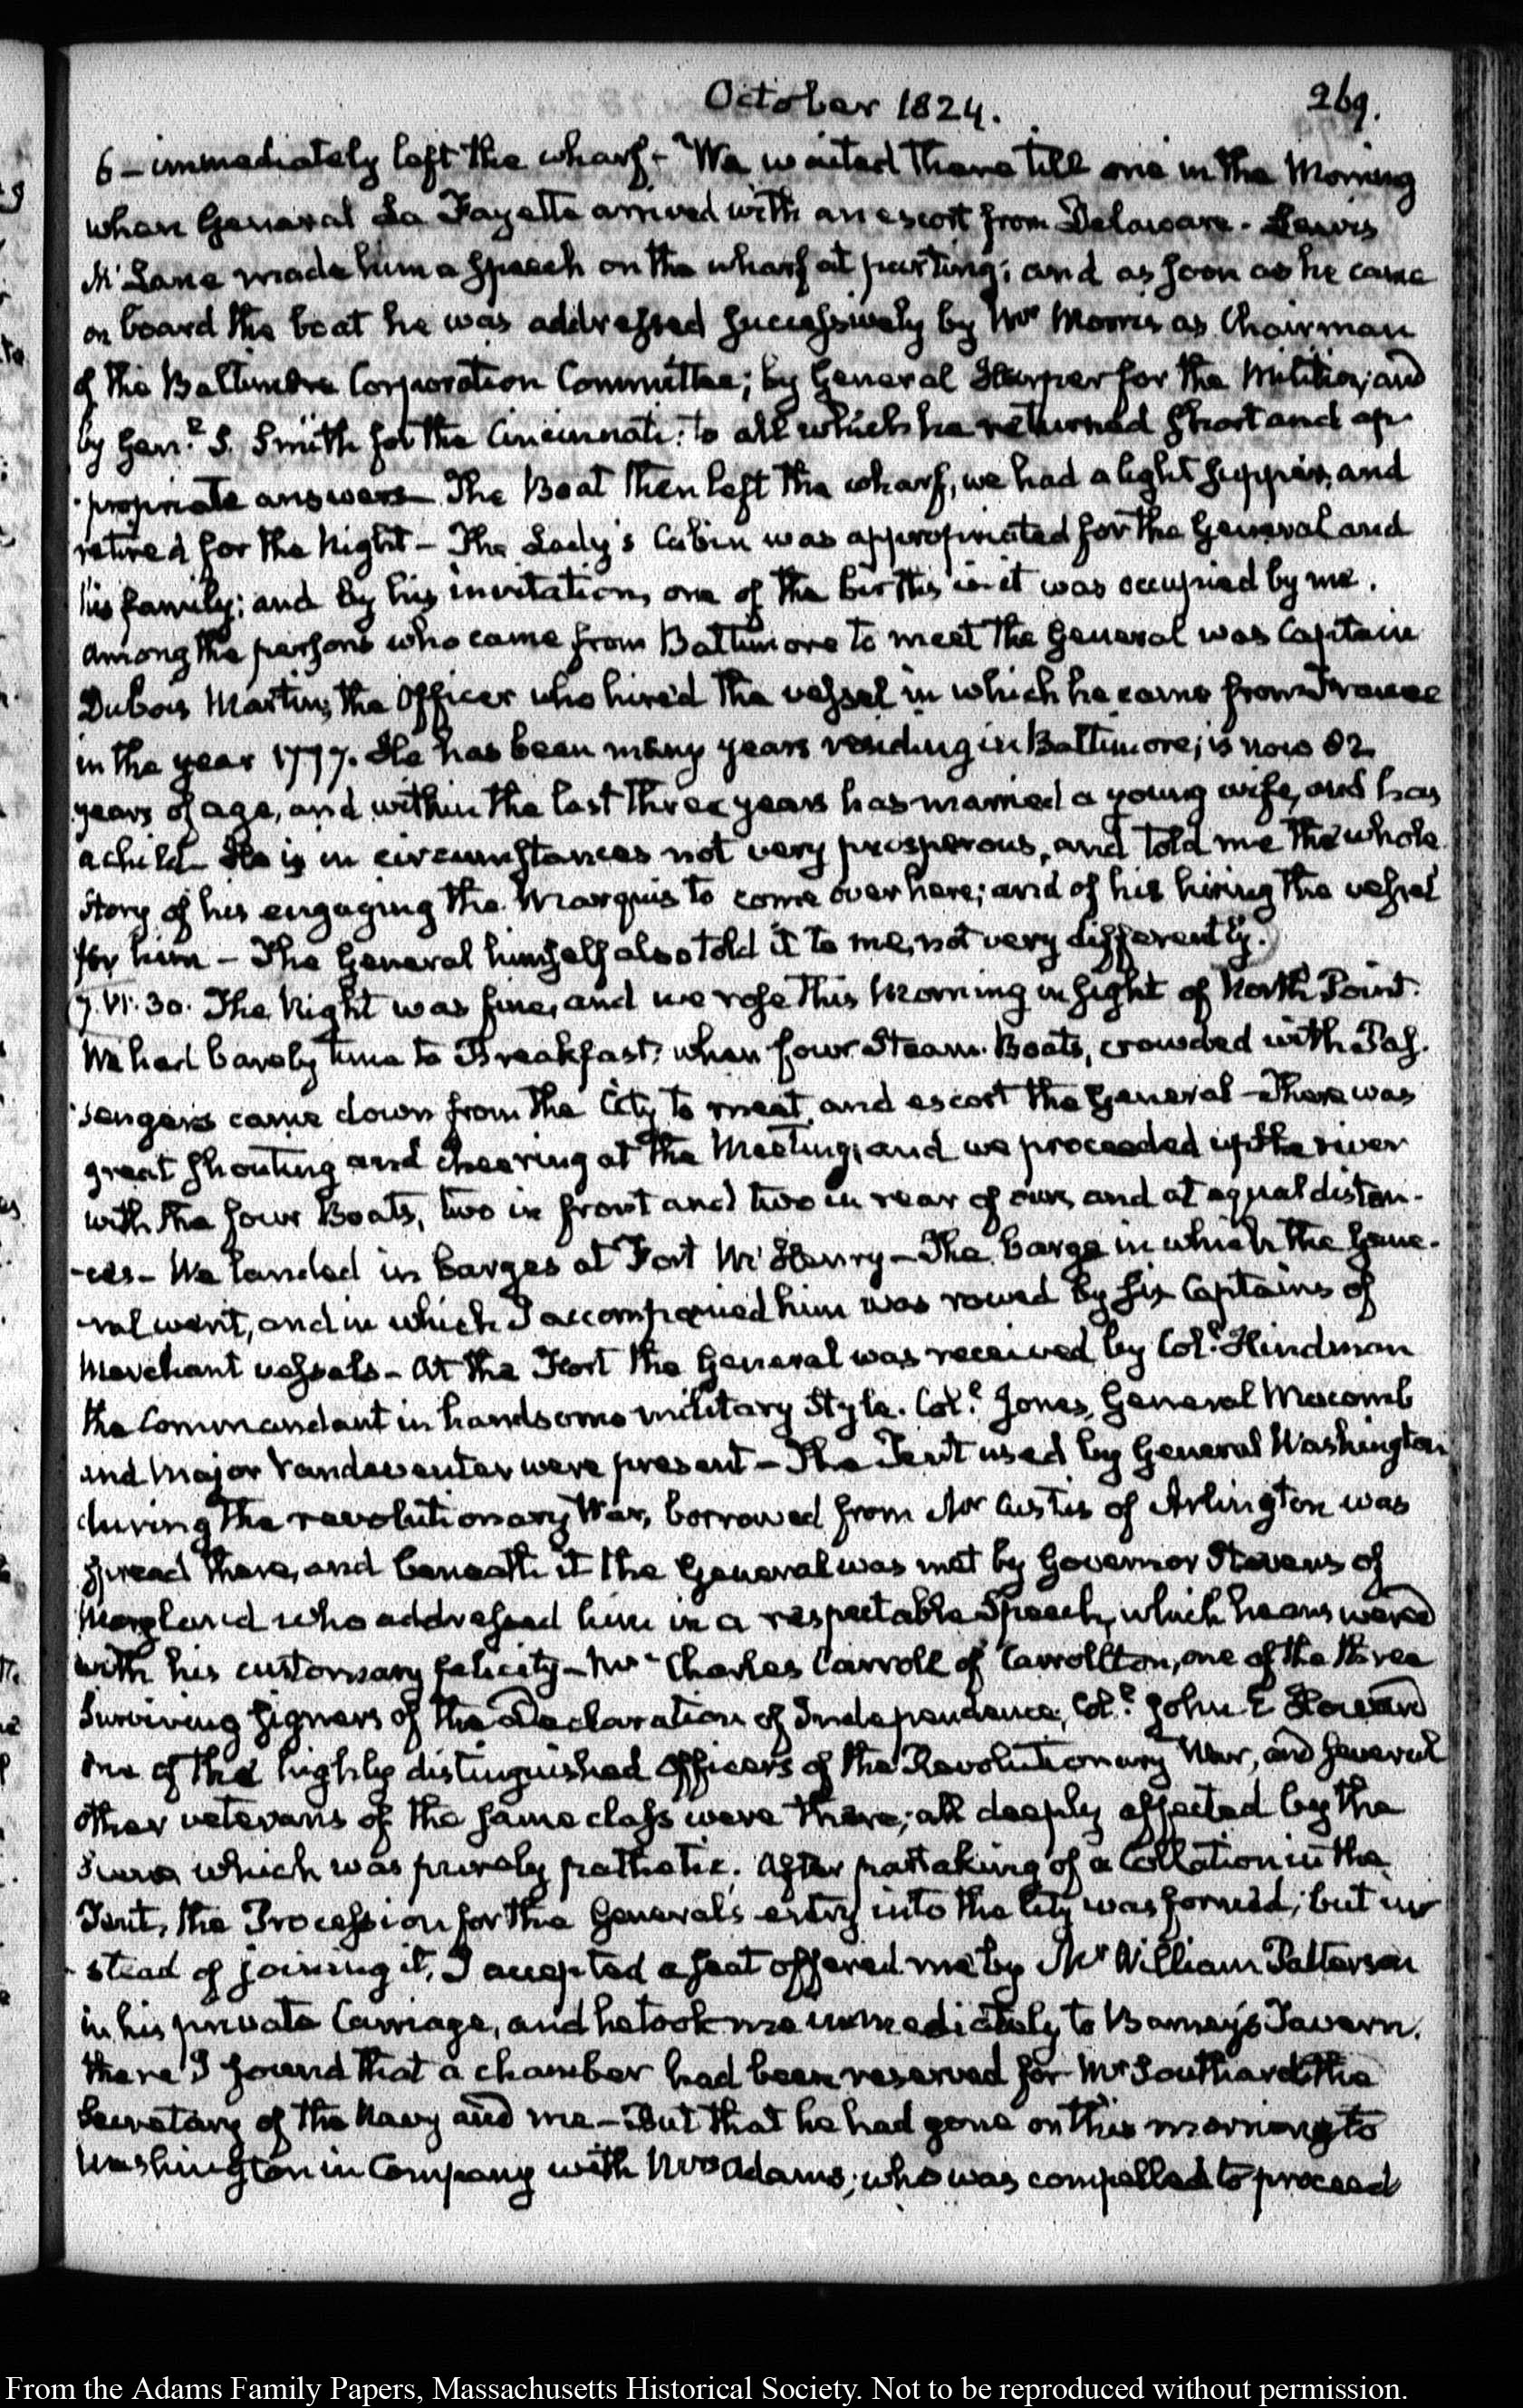 October 1824.
269.
6 – immediately left the wharf – We waited there till one in the Morning
when General La Fayette arrived with an escort from Delaware. Lewis
McLane made him a speech on the wharf at parting; and as soon as he came
on board the boat he was addressed successively by Mr Morris as Chairman
of the Baltimore Corporation Committee; by General Harper for the Militia; and
by Genl. S. Smith for the Cincinnati: to all which he returned short and ap-
propriate answers – The Boat then left the wharf, we had a light supper, and
retired for the Night – The Lady's Cabin was appropriated for the General and
his family; and by his invitation, one of the births in it was occupied by me.
Among the persons who came from Baltimore to meet the General was Captain
Dubois Martin, the Officer who hired the vessel in which he came from France
in the year 1777. He has been many years residing in Baltimore; is now 82
years of age, and within the last three years has married a young wife, and has
a child – He is in circumstances not very prosperous, and told me the whole
story of his engaging the Marquis to come over here; and of his hiring the vessel
for him – The General himself also told it to me, not very differently.
7. VI:30. The Night was fine, and we rose this Morning in sight of North Point.
We had barely time to Breakfast, when four Steam-Boats, crowded with Pas-
sengers came down from the City to meet and escort the General – There was
great shouting and cheering at the Meeting; and we proceeded up the river
with the four Boats, two in front and two in rear of ours, and at equal distan-
-ces – We landed in barges at Fort McHenry – The barge in which the Gene-
-ral went, and in which I accompanied him was rowed by six Captains of
Merchant vessels – At the Fort the General was received by Coll. Hindman
the Commandant in handsome military Style. Coll. Jones, General Macomb
and Major Vandeventer were present – The Tent used by General Washington
during the revolutionary War, borrowed from Mr Custis of Arlington was
spread there, and beneath it the General was met by Governor Stevens of
Maryland who addressed him in a respectable Speech, which he answered
with his customary felicity – Mr Charles Carroll of Carrollton, one of the three
surviving signers of the Declaration of Independence, Coll. John E Howard
one of the highly distinguished Officers of the Revolutionary War, and several
other veterans of the same class were there; all deeply affected by the
scene which was purely pathetic. After partaking of a Collation in the
Tent, the Procession for the General's entry into the City was formed; but in-
-stead of joining it, I accepted a seat offered me by Mr William Patterson
in his private Carriage, and he took me immediately to Barney's Tavern.
there I found that a chamber had been reserved for Mr Southard the
Secretary of the Navy and me – But that he had gone on this morning to
Washington in Company with Mrs Adams; who was compelled to proceed
From the Adams Family Papers, Massachusetts Historical Society. Not to be reproduced without permission.